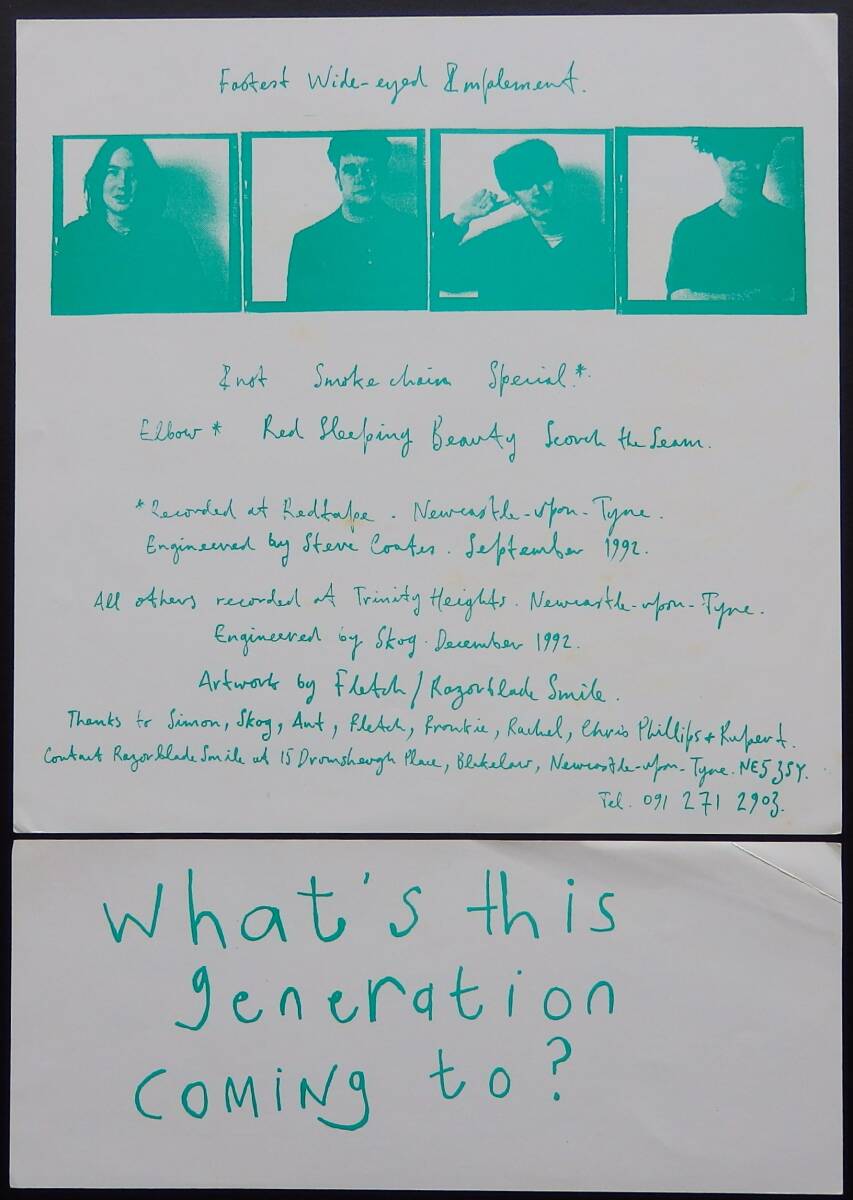 Fastest Wide-eyed Implement.
Knot Smoke chain Special.*
Elbow* Red Sleeping Beauty Scorch the Seam.
*Recorded at Redtape. Newcastle-upon-Tyne.
Engineered by Steve Coates. September 1992.
All others recorded at Trinity Heights. Newcastle-upon-Tyne.
Engineered by Skog. December 1992.
Artwork by Fletch/Razorblade Smile.
Thanks to Simon, Skog, Ant, Fletch, Frankie, Rachel, Chris Phillips + Rupert.
Contact Razorblade Smile at 15 Dromsheugh Place, Blakelaw, Newcastle-upon-Tyne. NE5 3SY.
Tel. 091 271 2903.
What's this
generation
coming to?